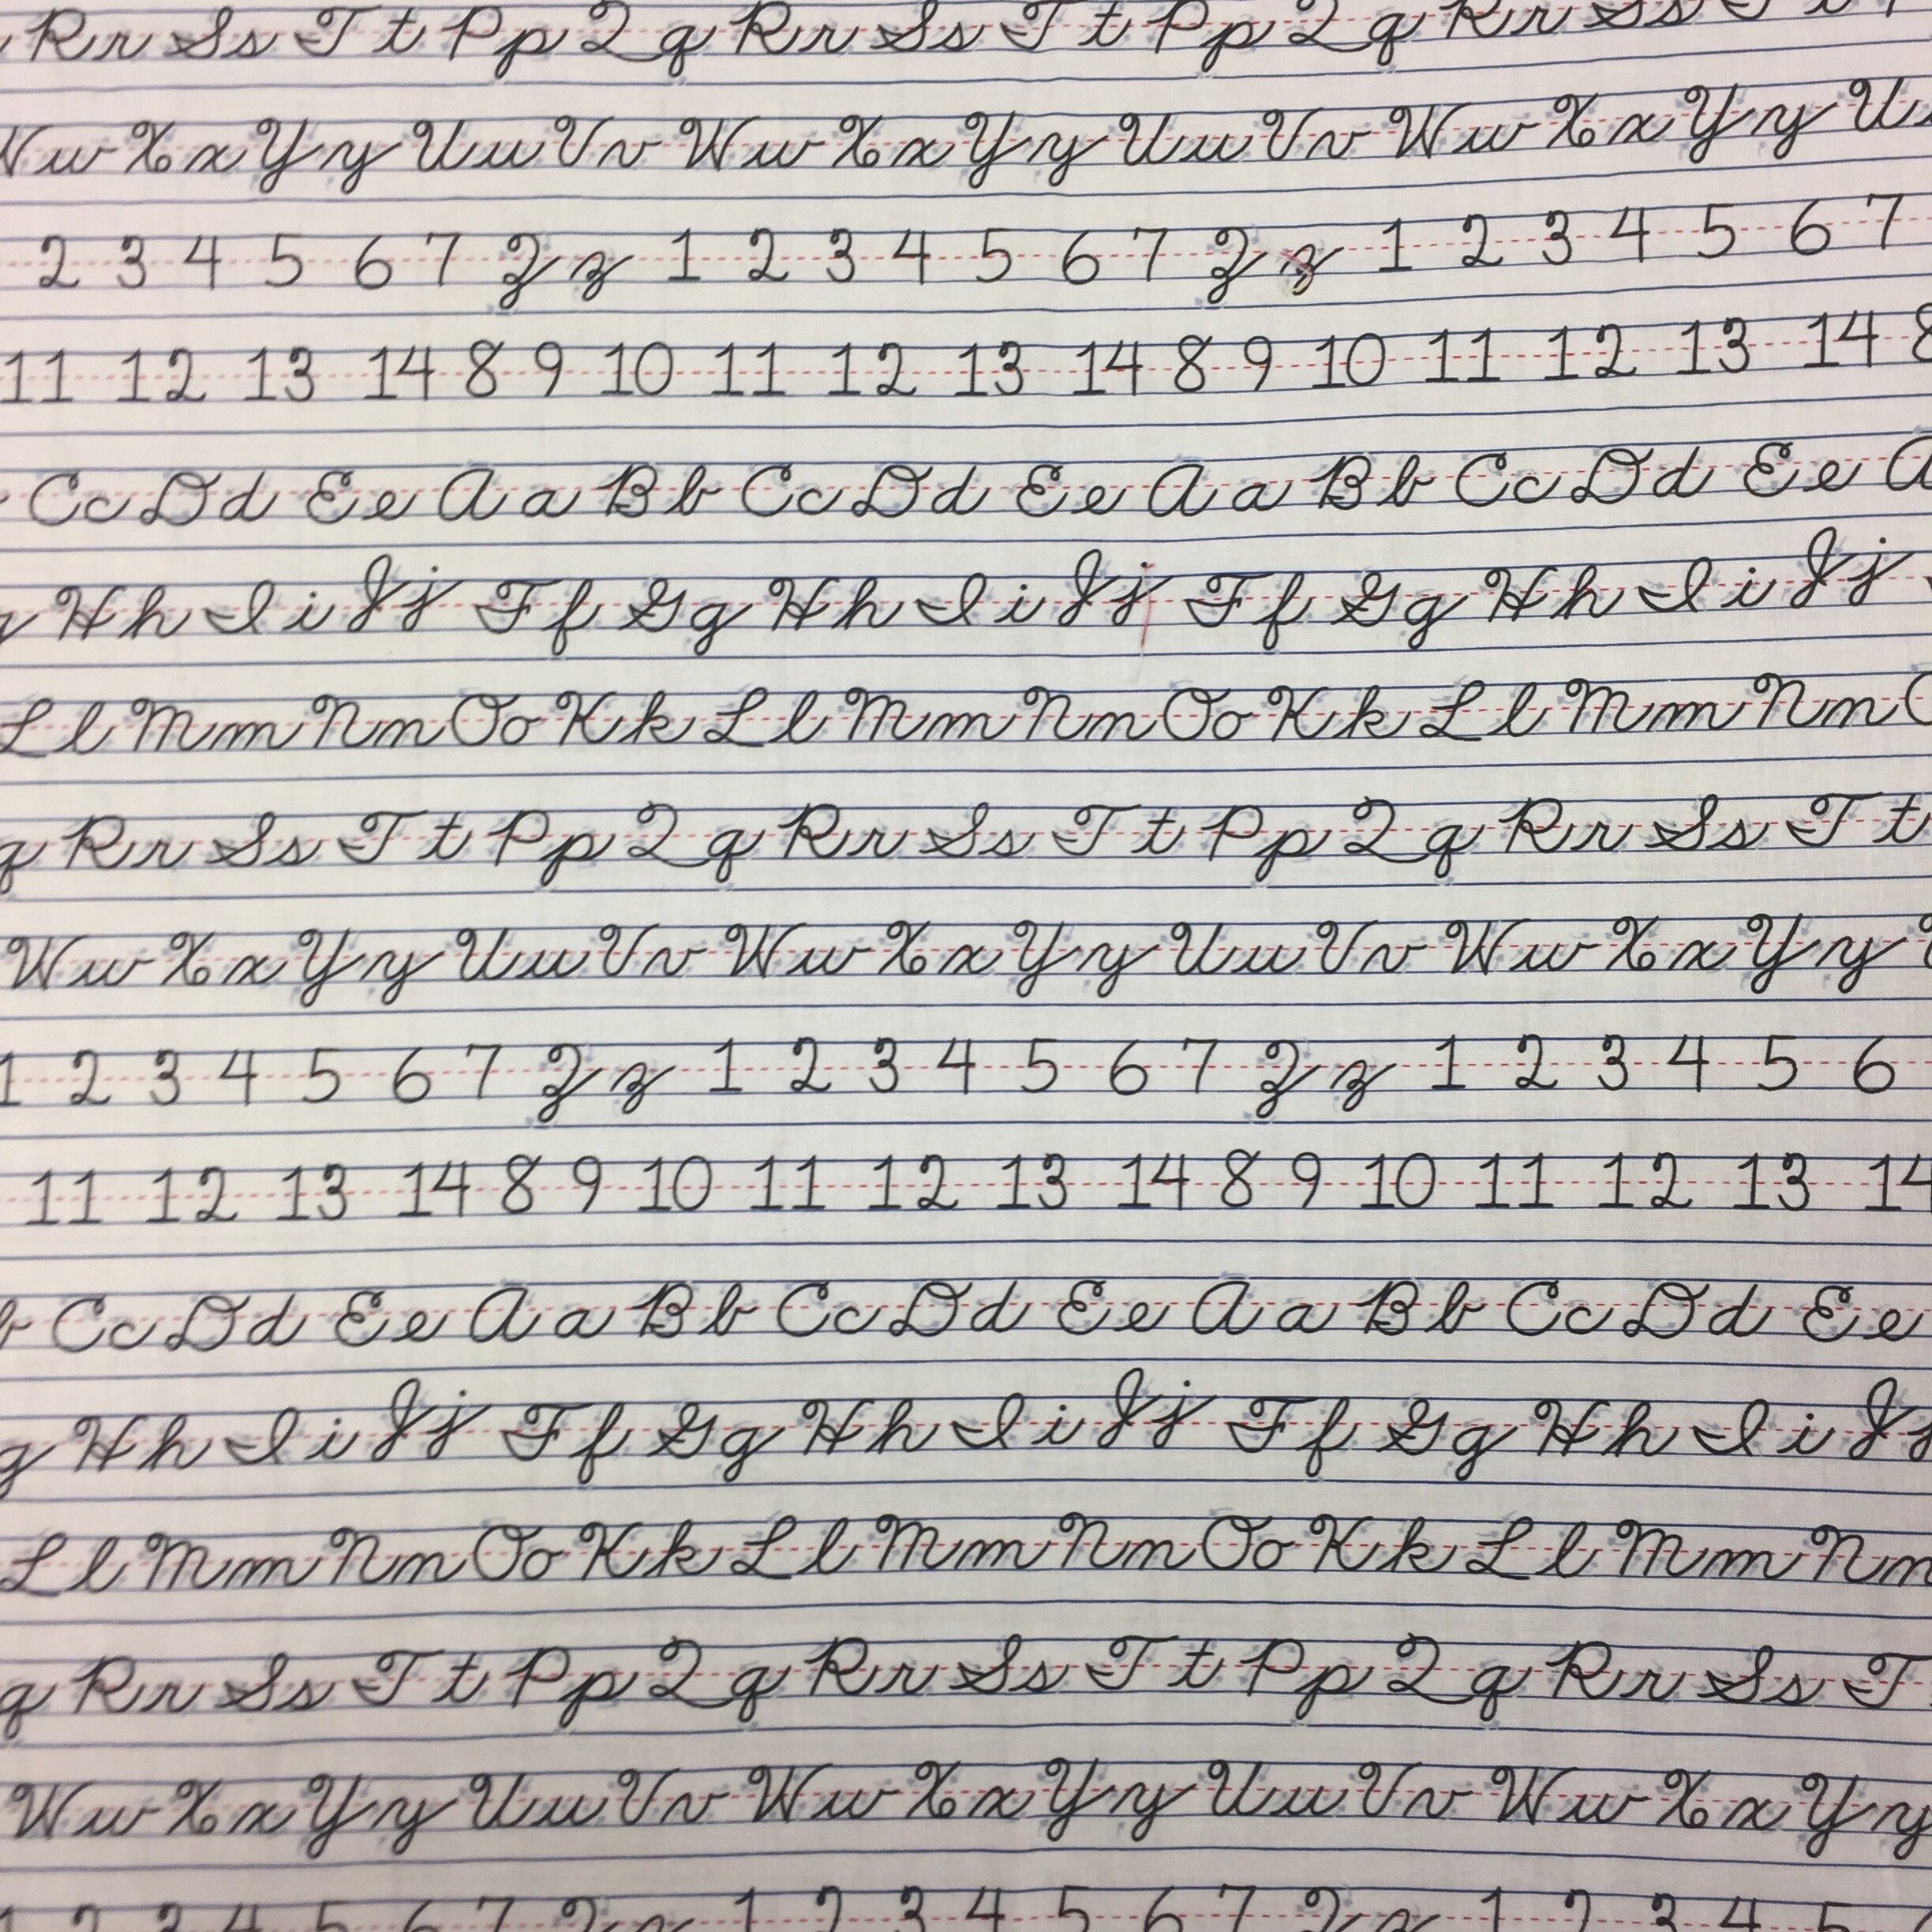 Rr Ss Tt Pp Qq Rr Ss Tt Pp Qq Rr Ss T t
Ww Xx Yy Uu Vv Ww Xx Yy Uu Vv Ww Xx Yy U
2 3 4 5 6 7 Zz 1 2 3 4 5 6 7 Zz 1 2 3 4 5 6 7
11 12 13 14 8 9 10 11 12 13 14 8 9 10 11 12 13 14 8
Cc Dd Ee Aa Bb Cc Dd Ee Aa Bb Cc Dd Ee A
g Hh Ii Jj Ff Gg Hh Ii Jj Ff Gg Hh Ii Jj
Ll Mm Nn Oo Kk Ll Mm Nn Oo Kk Ll Mm Nn O
q Rr Ss Tt Pp Qq Rr Ss Tt Pp Qq Rr Ss Tt
Ww Xx Yy Uu Vv Ww Xx Yy Uu Vv Ww Xx Yy
1 2 3 4 5 6 7 Zz 1 2 3 4 5 6 7 Zz 1 2 3 4 5 6
11 12 13 14 8 9 10 11 12 13 14 8 9 10 11 12 13 14
b Cc Dd Ee Aa Bb Cc Dd Ee Aa Bb Cc Dd Ee
g Hh Ii Jj Ff Gg Hh Ii Jj Ff Gg Hh Ii Jj
Ll Mm Nn Oo Kk Ll Mm Nn Oo Kk Ll Mm Nn
q Rr Ss Tt Pp Qq Rr Ss Tt Pp Qq Rr Ss T
Ww Xx Yy Uu Vv Ww Xx Yy Uu Vv Ww Xx Yy
1 2 3 4 5 6 7 Zz 1 2 3 4 5 6 7 Zz 1 2 3 4 5